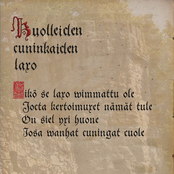 Huolleiden
cuninkaiden
laxo
Eikö se laxo wimmattu ole
Jocta kertoimuxet nämät tule
On siel yxi huone
Josa wanhat cuningat cuole